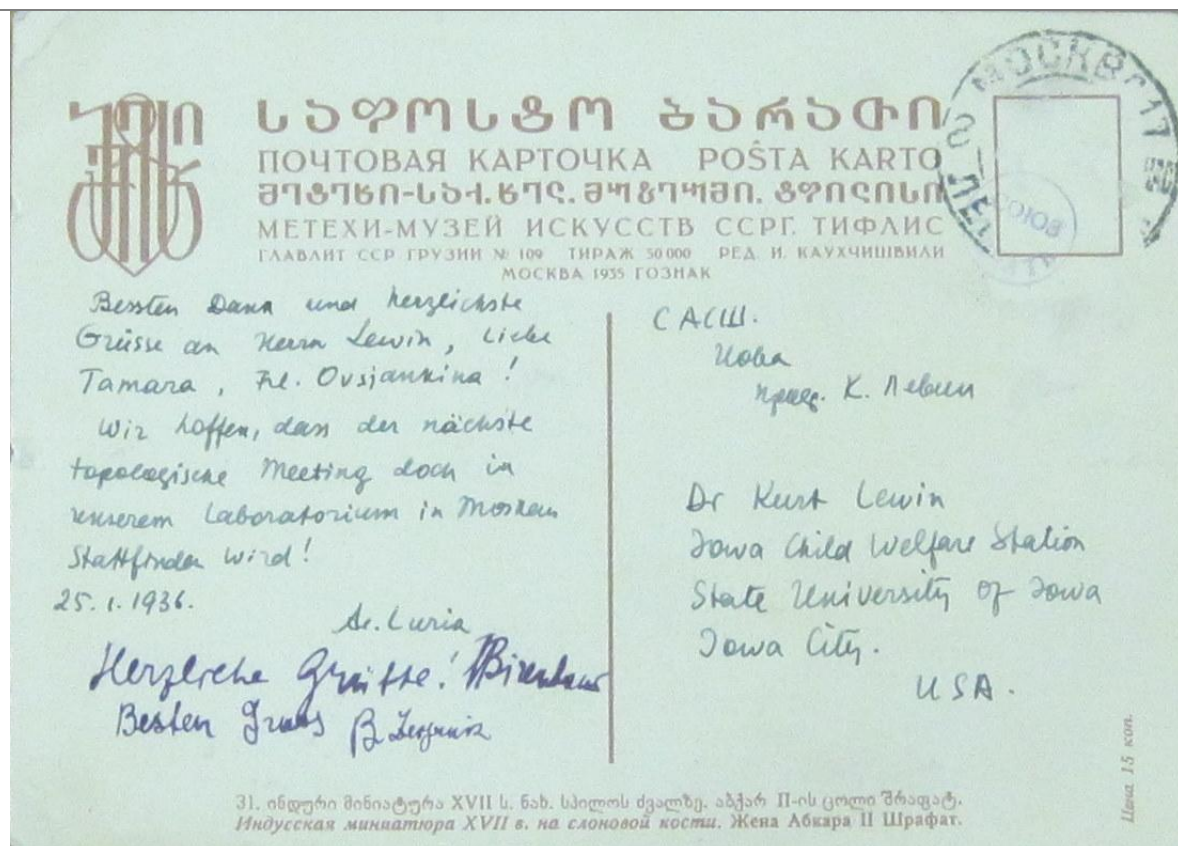 საფოსტო ბარათი
ПОЧТОВАЯ КАРТОЧКА POŜTA KARTO
მეტეხი-საქ. ხელ. მუზეუმი. ტფილისი
МЕТЕХИ-МУЗЕЙ ИСКУССТВ ССРГ. ТИФЛИС
ГЛАВЛИТ ССР ГРУЗИИ № 109 ТИРАЖ 50000 РЕД. И. КАУХЧИШВИЛИ
МОСКВА 1935 ГОЗНАК
МОСКВА
Bessten Dank und herzlichste
Grüsse an Herrn Lewin, Liebe
Tamara, Frl. Ovsjankina!
Wir hoffen, dass der nächste
topologische Meeting doch in
unserem Laboratorium in Moskau
Stattfinden wird!
25.1.1936.
Al. Luria
Herzliche Grüsse!
Besten Gruss B.
САСШ.
Иова
К. Левин
Dr Kurt Lewin
Iowa Child Welfare Station
State University of Iowa
Iowa City.
USA.
Цена 15 коп.
31. ინდური მინიატურა XVII ს. ნახ. სპილოს ძვალზე. აბქარ II-ის ცოლი შრაფატ.
Индусская миниатюра XVII в. на слоновой кости. Жена Абкара II Шрафат.